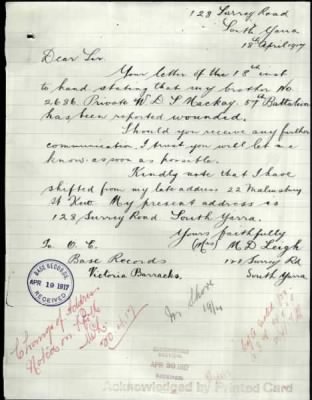 128 Surrey Road
South Yarra
18th April 1917
Dear Sir
Your letter of the 18th inst
to hand stating that my brother No.
2686. Private W D S Mackay 57th Battalion
has been reported wounded.
Should you receive any further
communication. I trust you will let me
know as soon as possible.
Kindly note that I have
shifted from my late address 22 Malmsbury
St Kew. My present address is
128 Surrey Road South Yarra.
Yours faithfully
(Mrs) M. D. Leigh
128 Surrey Rd
South Yarra
Base Records
Victoria Barracks.
BASE RECORDS
APR 19 1917
RECEIVED
Change of Address
Noted on
19/4
APR 20 1917
Acknowledged by Printed Card